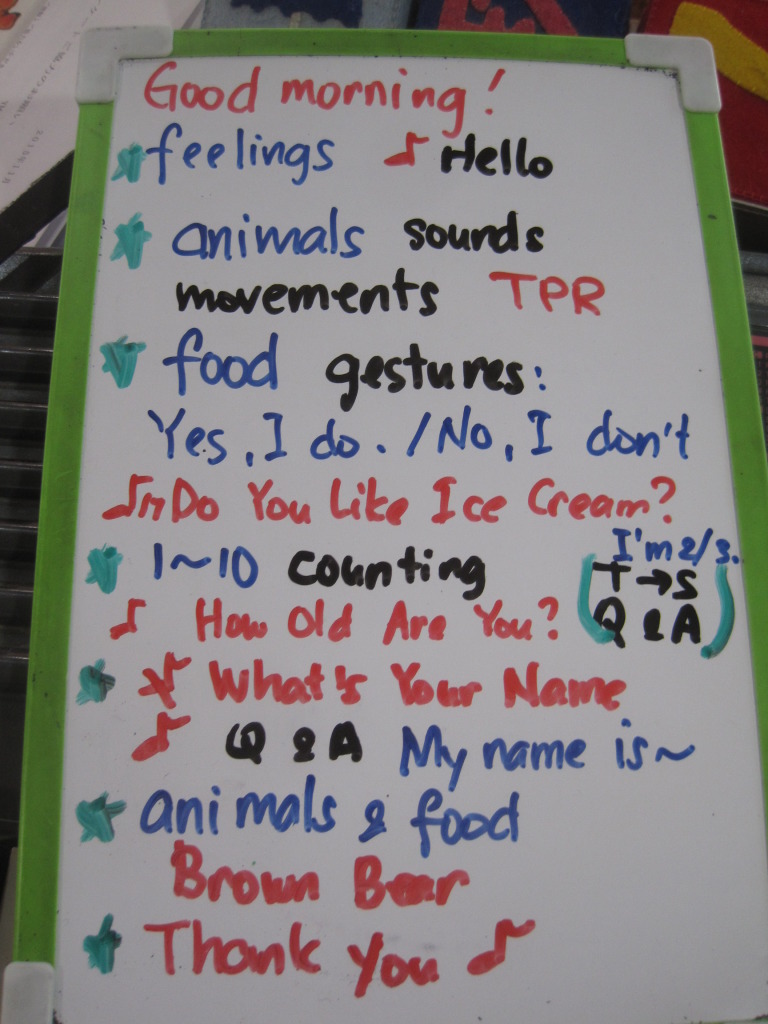 Good morning!
feelings ♪ Hello
animals sounds
movements TPR
food gestures:
Yes, I do. / No, I don't
♪♫ Do You Like Ice Cream?
I'm 2/3.
1~10 counting (T→S
♪ How Old Are You? Q & A)
What's Your Name
♪ Q & A My name is~
animals & food
Brown Bear
Thank you ♪